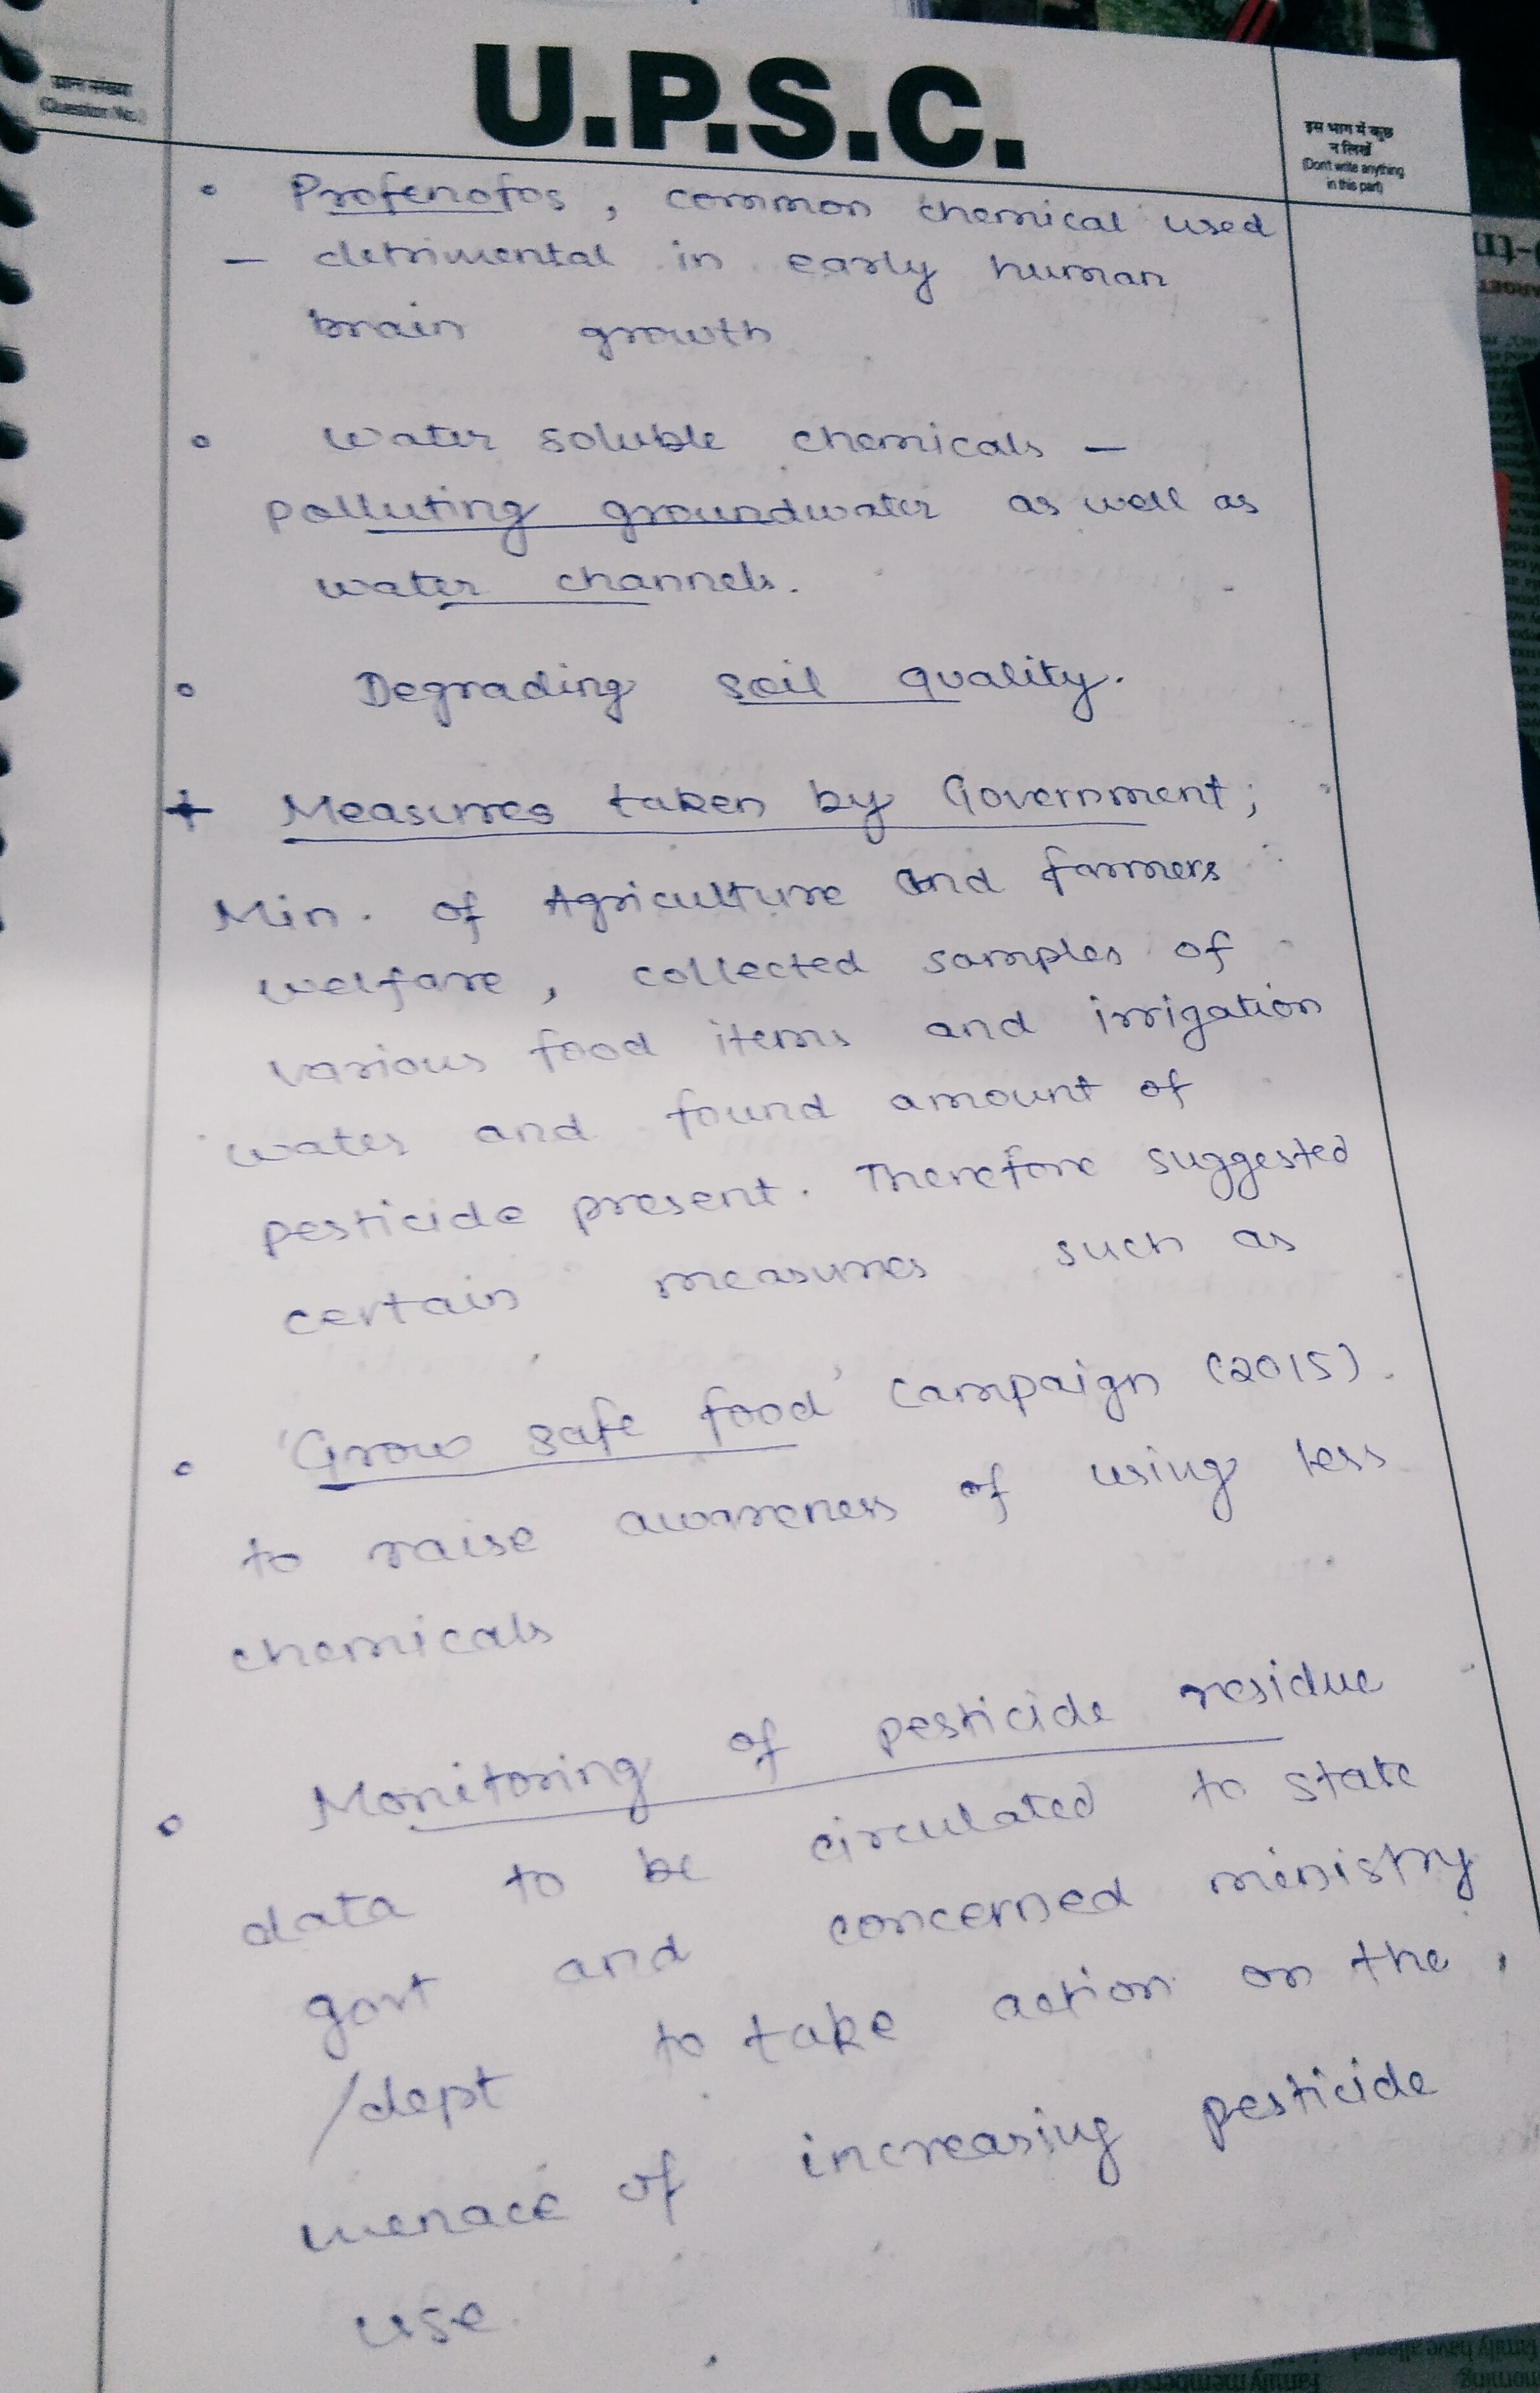 प्रश्न संख्या
(Question No.)
U.P.S.C.
इस भाग में कुछ
न लिखें
(Don't write anything
in this part)
• Profenofos, common chemical used
– detrimental in early human
brain growth
• water soluble chemicals –
polluting groundwater as well as
water channels.
• Degrading soil quality.
+ Measures taken by Government;
Min. of Agriculture and farmers
welfare, collected samples of
various food items and irrigation
water and found amount of
pesticide present. Therefore suggested
certain measures such as
• 'Grow safe food' campaign (2015).
to raise awareness of using less
chemicals
• Monitoring of pesticide residue
data to be circulated to state
govt and concerned ministry
/dept to take action on the
menace of increasing pesticide
use.